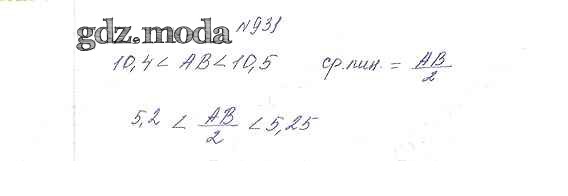 gdz.moda №931
10,4 < AB < 10,5 ср.лин. = AB/2
5,2 < AB/2 < 5,25